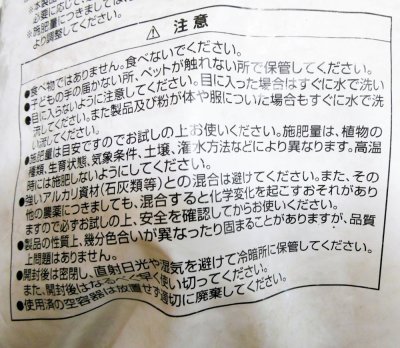 ※施肥量につきましては
より調整してください。
⚠ 注意
●食べ物ではありません。食べないでください。
●子どもの手の届かない所、ペットが触れない所で保管してください。
●目に入らないように注意してください。目に入った場合はすぐに水で洗い
流してください。また製品及び粉が体や服についた場合もすぐに水で洗
い流してください。
●施肥量は目安ですのでお試しの上お使いください。施肥量は、植物の
種類、生育状態、気象条件、土壌、潅水方法などにより異なります。高温
時には施肥しないようにしてください。
●強いアルカリ資材(石灰類等)との混合は避けてください。また、その
他の農薬につきましても、混合すると化学変化を起こすおそれがあり
ますので必ずお試しの上、安全を確認してからお使いください。
●製品の性質上、幾分色合いが異なったり固まることがありますが、品質
上問題はありません。
●開封後は密閉し、直射日光や湿気を避けて冷暗所に保管してください。
また、開封後はなるべく早く使い切ってください。
●使用済の空容器は放置せず適切に廃棄してください。